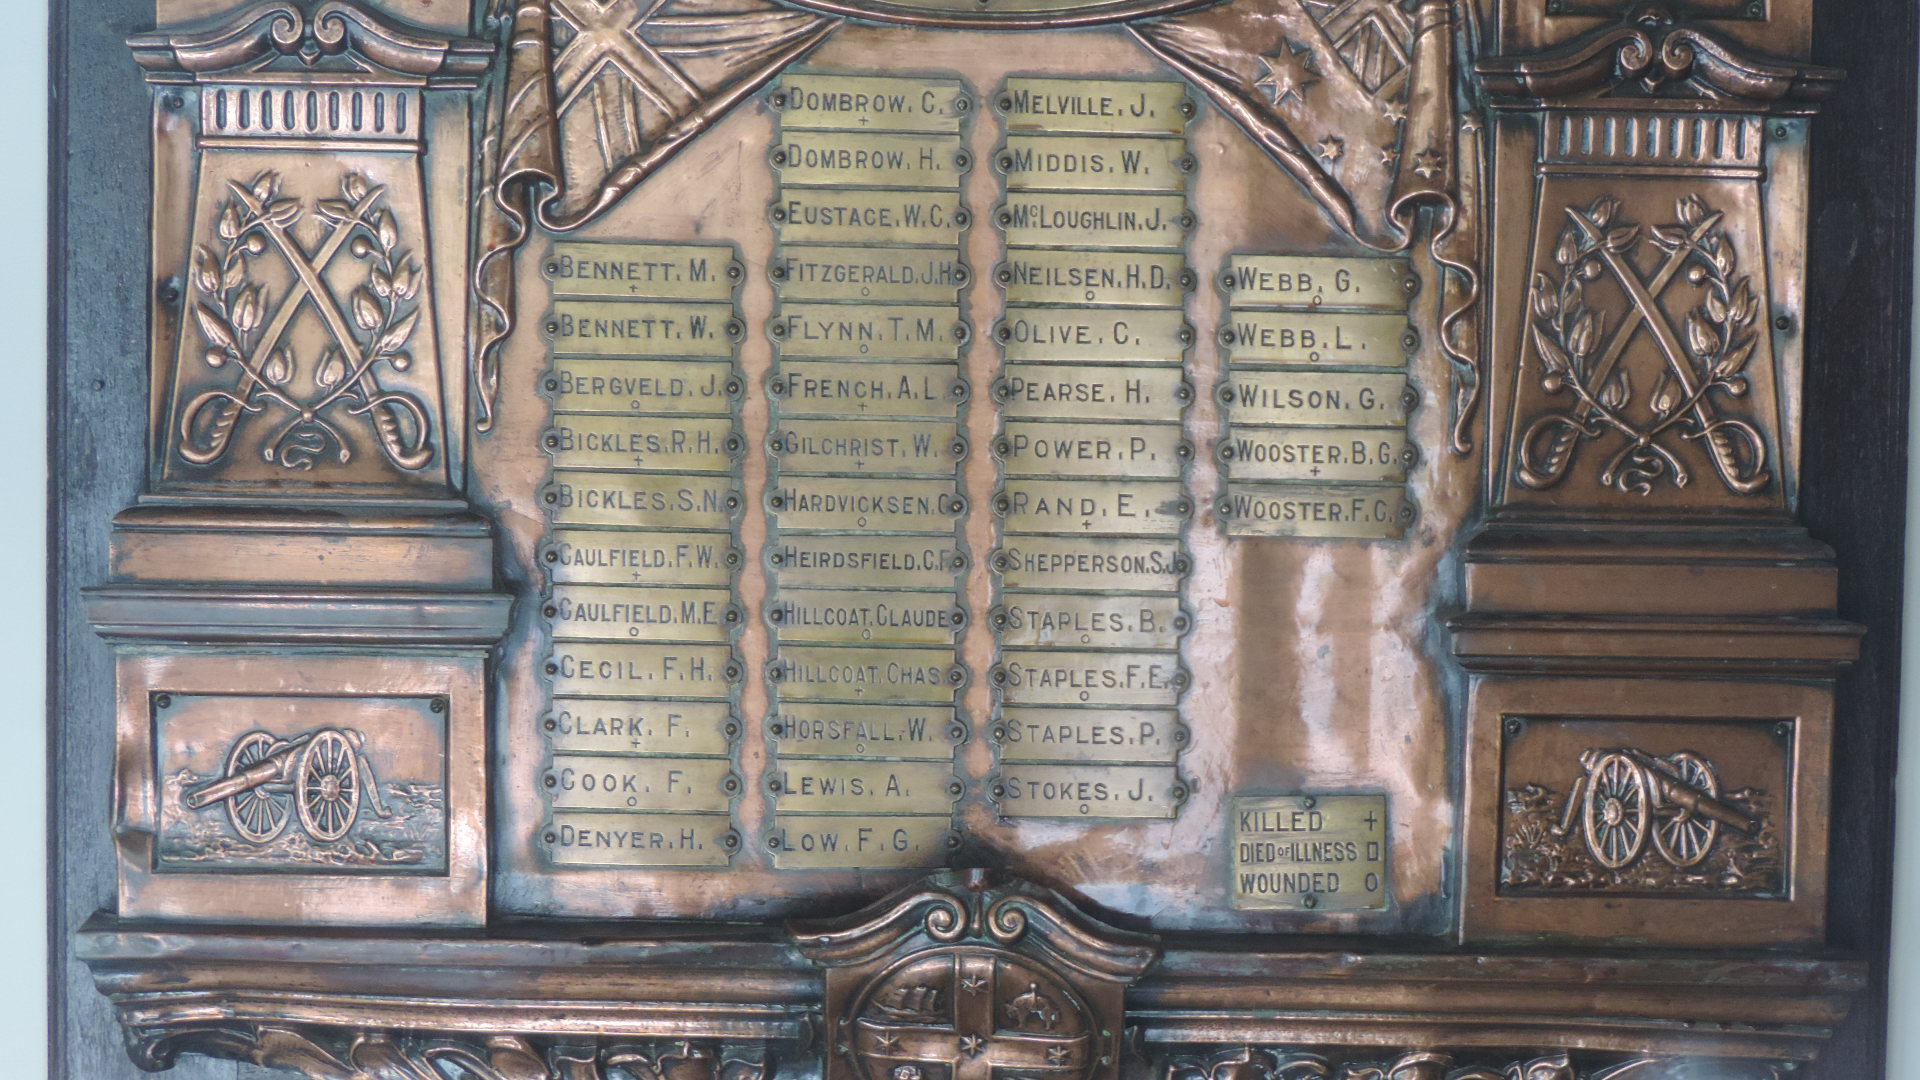 BENNETT. M.
+
BENNETT. W.
BERGVELD. J.
O
BICKLES. R. H.
+
BICKLES. S. N.
CAULFIELD. F. W.
+
CAULFIELD. M. E
O
CECIL. F. H.
CLARK. F.
+
COOK. F.
O
DENYER. H.
DOMBROW. C.
+
DOMBROW. H.
EUSTACE. W. C.
FITZGERALD. J. H
O
FLYNN. T. M.
O
FRENCH. A. L
+
GILCHRIST. W.
+
HARDVICKSEN. C
O
HEIRDSFIELD. C. F.
HILLCOAT. CLAUDE
O
HILLCOAT. CHAS
+
HORSFALL. W.
O
LEWIS. A.
LOW. F. G.
MELVILLE. J.
MIDDIS. W.
McLOUGHLIN. J.
NEILSEN. H. D.
O
OLIVE. C.
PEARSE. H.
POWER. P.
RAND. E.
+
SHEPPERSON. S. J
STAPLES. B.
O
STAPLES. F. E.
O
STAPLES. P.
STOKES. J.
O
WEBB. G.
O
WEBB. L.
O
WILSON. G.
WOOSTER. B. G.
+
WOOSTER. F. C.
KILLED +
DIED OF ILLNESS □
WOUNDED O